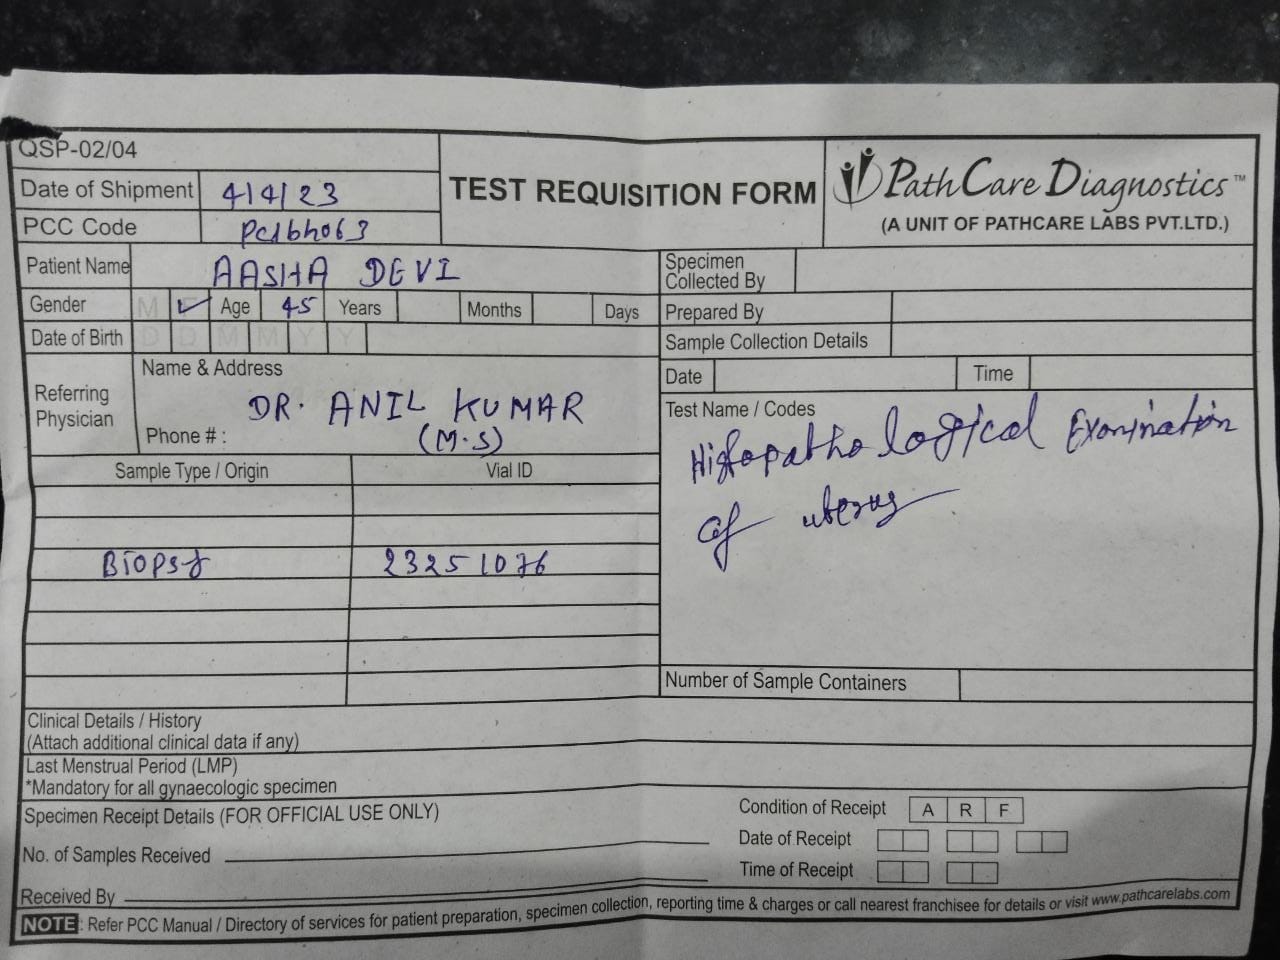 QSP-02/04
Date of Shipment 4/4/23
PCC Code Pc1bh063
TEST REQUISITION FORM
PathCare Diagnostics™
(A UNIT OF PATHCARE LABS PVT.LTD.)
Patient Name AASHA DEVI
Gender M F ✓ Age 45 Years Months Days
Date of Birth D D M M Y Y
Referring Physician
Name & Address
DR. ANIL KUMAR
(M.S)
Phone # :
Sample Type / Origin Vial ID
Biopsy 23251076
Specimen Collected By
Prepared By
Sample Collection Details
Date Time
Test Name / Codes
Histopathological Examination
of uterus
Number of Sample Containers
Clinical Details / History
(Attach additional clinical data if any)
Last Menstrual Period (LMP)
*Mandatory for all gynaecologic specimen
Specimen Receipt Details (FOR OFFICIAL USE ONLY)
No. of Samples Received
Received By
Condition of Receipt A R F
Date of Receipt
Time of Receipt
NOTE : Refer PCC Manual / Directory of services for patient preparation, specimen collection, reporting time & charges or call nearest franchisee for details or visit www.pathcarelabs.com